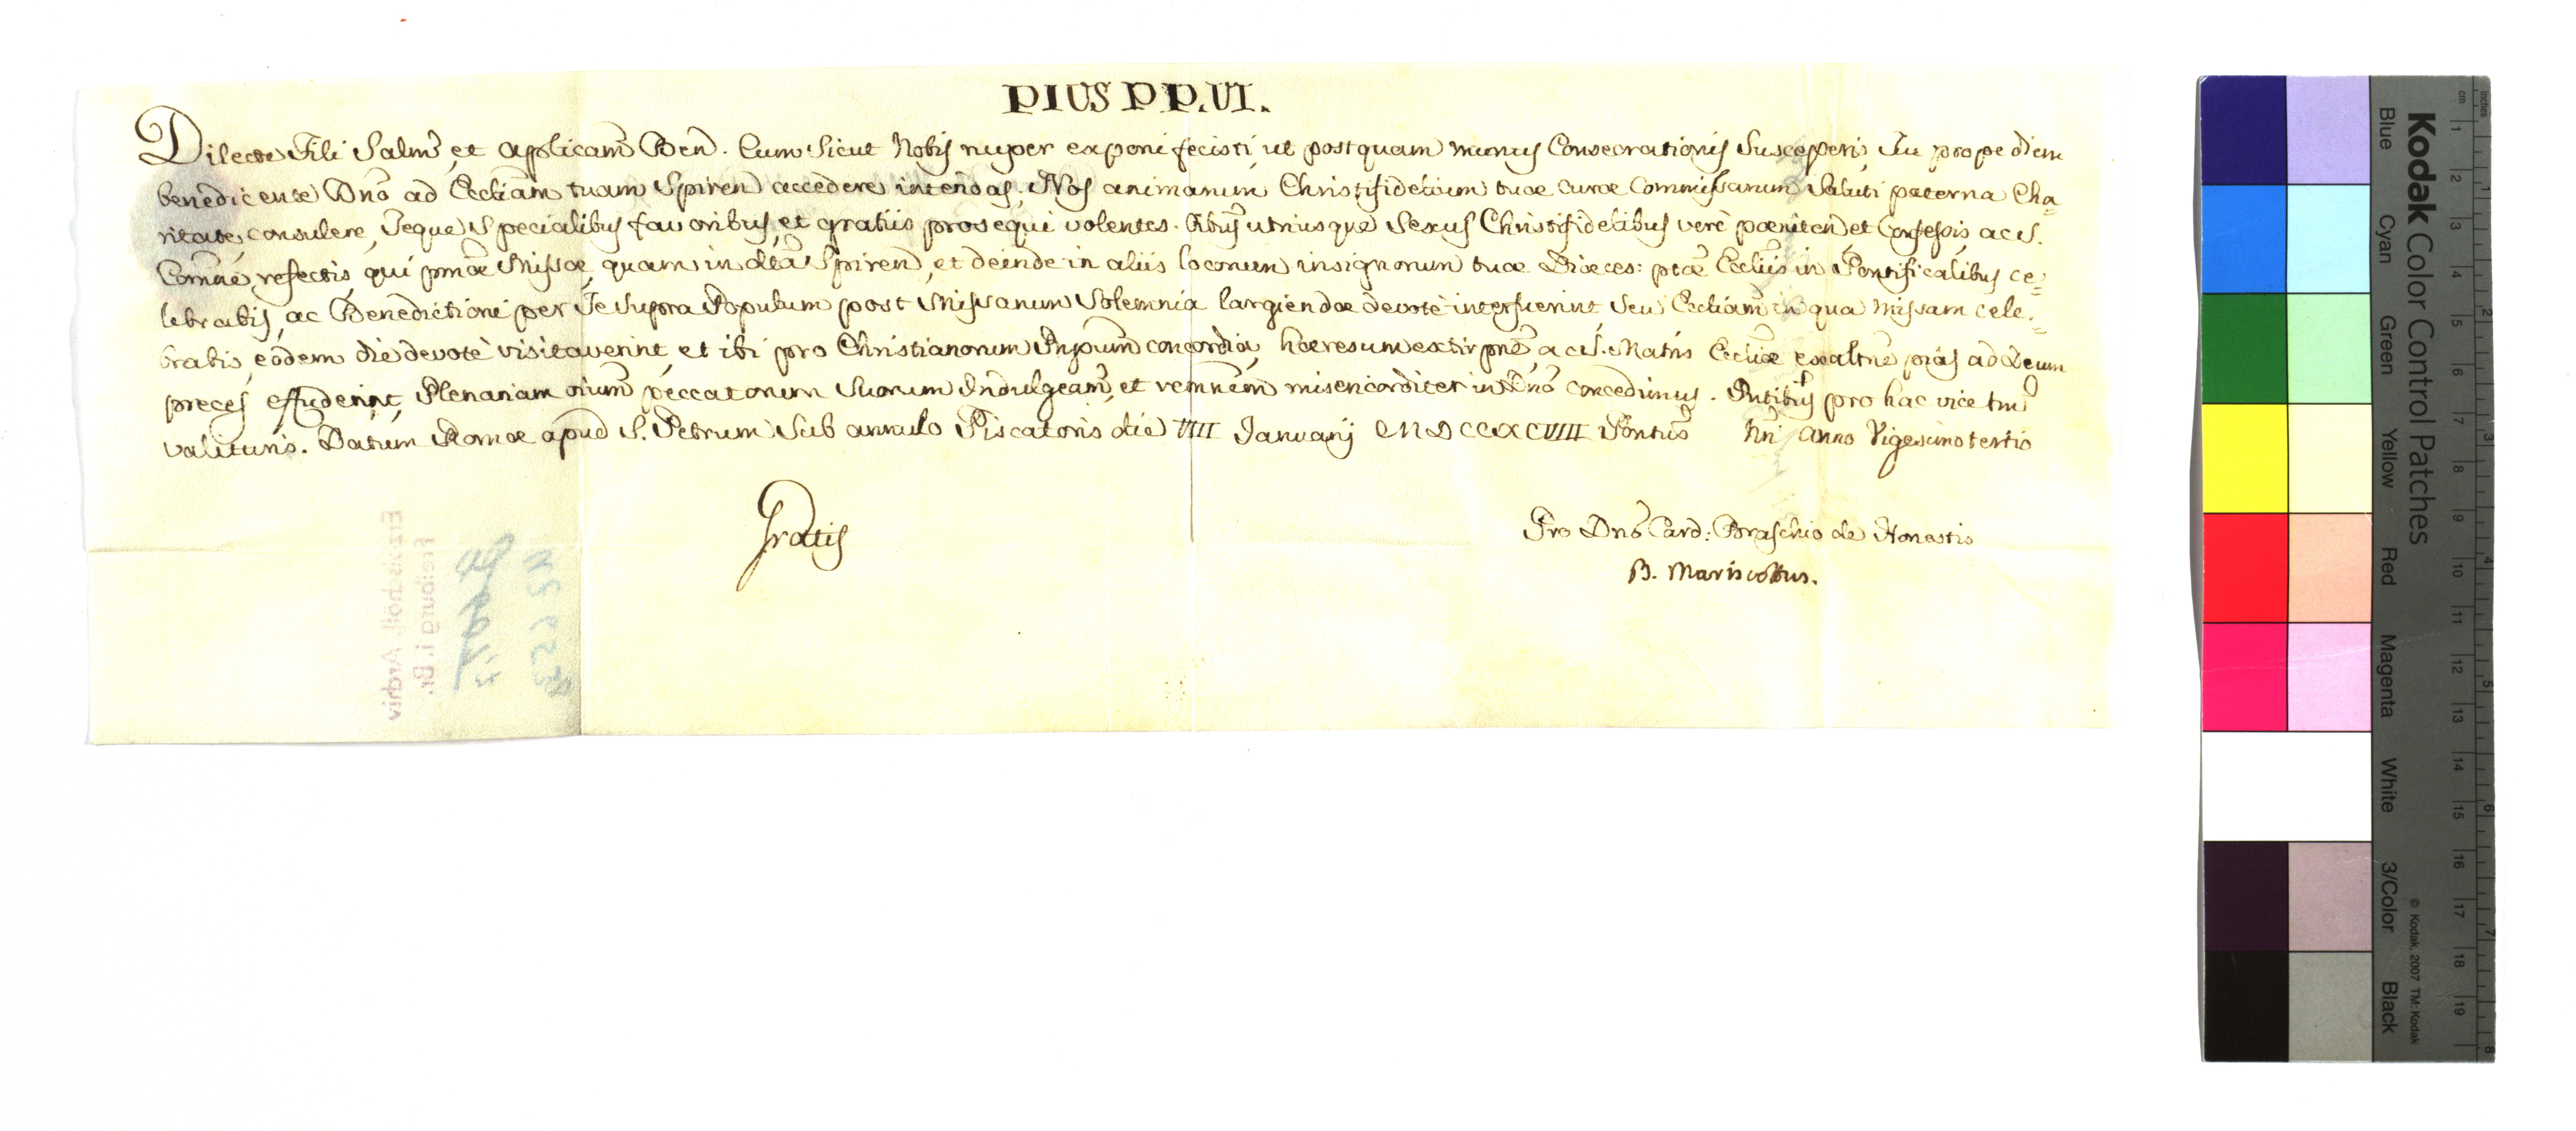 PIUS P.P. VI.
Dilecte Fili Salm̄ et Applicam̄ Ben. Cum Sicut Nobis nuper exponi fecisti, ut postquam munus Consecrationis Susceperis, Tu prope diem
benedicente Dno ad Eccliam tuam Spiren accedere intendas, Nos animarum Christifidelium tuae curae Commissarum Saluti paterna Cha=
ritate, consulere, Teque Specialibus favoribus, et gratiis prosequi volentes. Oibus utriusque Sexus Christifidelibus verè poeniten et Confessis ac S.
Comne refectis, qui pmae Missae, quam in dta Spiren, et deinde in aliis locorum insigniorum tuae Dioeces: ptae Ecliis in Pontificalibus ce=
lebrabis, ac Benedictioni per Te Supra Populum post Missarum Solemnia largiendae devotè interfuerint Seu Eccliam in qua Missam cele=
brabis, eodem die devotè visitaverint, et ibi pro Christianorum Pnpum concordia, haeresum extirpne, ac S. Matris Eccliae exaltne pias ad Deum
preces effuderint, Plenariam oium peccatorum Suorum Indulgeam, et remnem misericorditer in Dno concedimus. Pntibus pro hac vice tm
valituris. Datum Romae apud S. Petrum Sub annulo Piscatoris die VIII Januarij MDCCLXCVIIII Pontus Nri Anno Vigesimotertio
Gratis
Pro Dno Card: Braschio de Honestis
B. Mariscottus.
Erzbischöfl. Archiv
Freiburg i. Br.
Kodak Color Control Patches
Blue Cyan Green Yellow Red Magenta White 3/Color Black
© Kodak, 2007 TM: Kodak
cm 1 2 3 4 5 6 7 8 9 10 11 12 13 14 15 16 17 18 19
inches 1 2 3 4 5 6 7 8